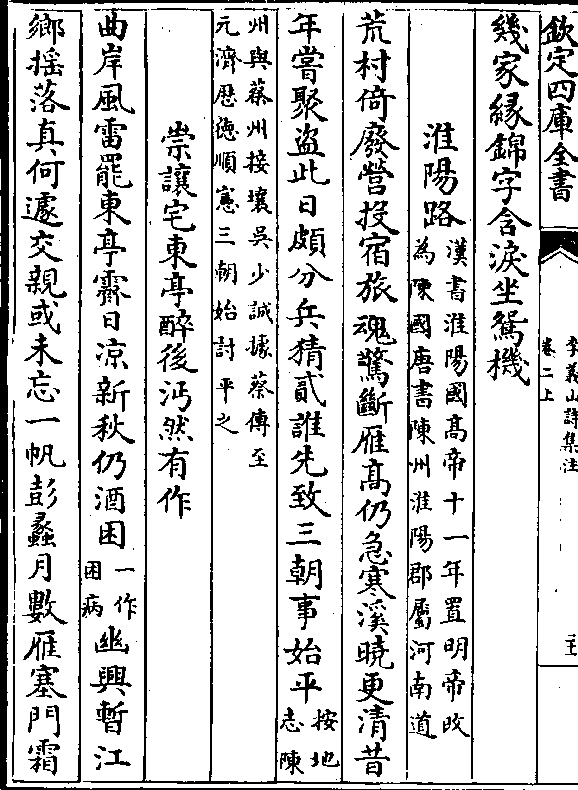 欽定四庫全書
李義山詩集注
卷二上
幾家緣錦字含淚坐鴛機
淮陽路
漢書淮陽國髙帝十一年置明帝改
為陳國唐書陳州淮陽郡屬河南道
荒村倚廢營投宿旅魂驚斷雁髙仍急寒溪曉更清昔
年嘗聚盗此日頗分兵猜貳誰先致三朝事始平
按地
志陳
州與蔡州接壤吳少誠據蔡傳至
元濟歴德順憲三朝始討平之
崇讓宅東亭醉後沔然有作
曲岸風雷罷東亭霽日凉新秋仍酒困
一作
困病
幽興暫江
鄉揺落真何遽交親或未忘一帆彭蠡月數雁塞門霜